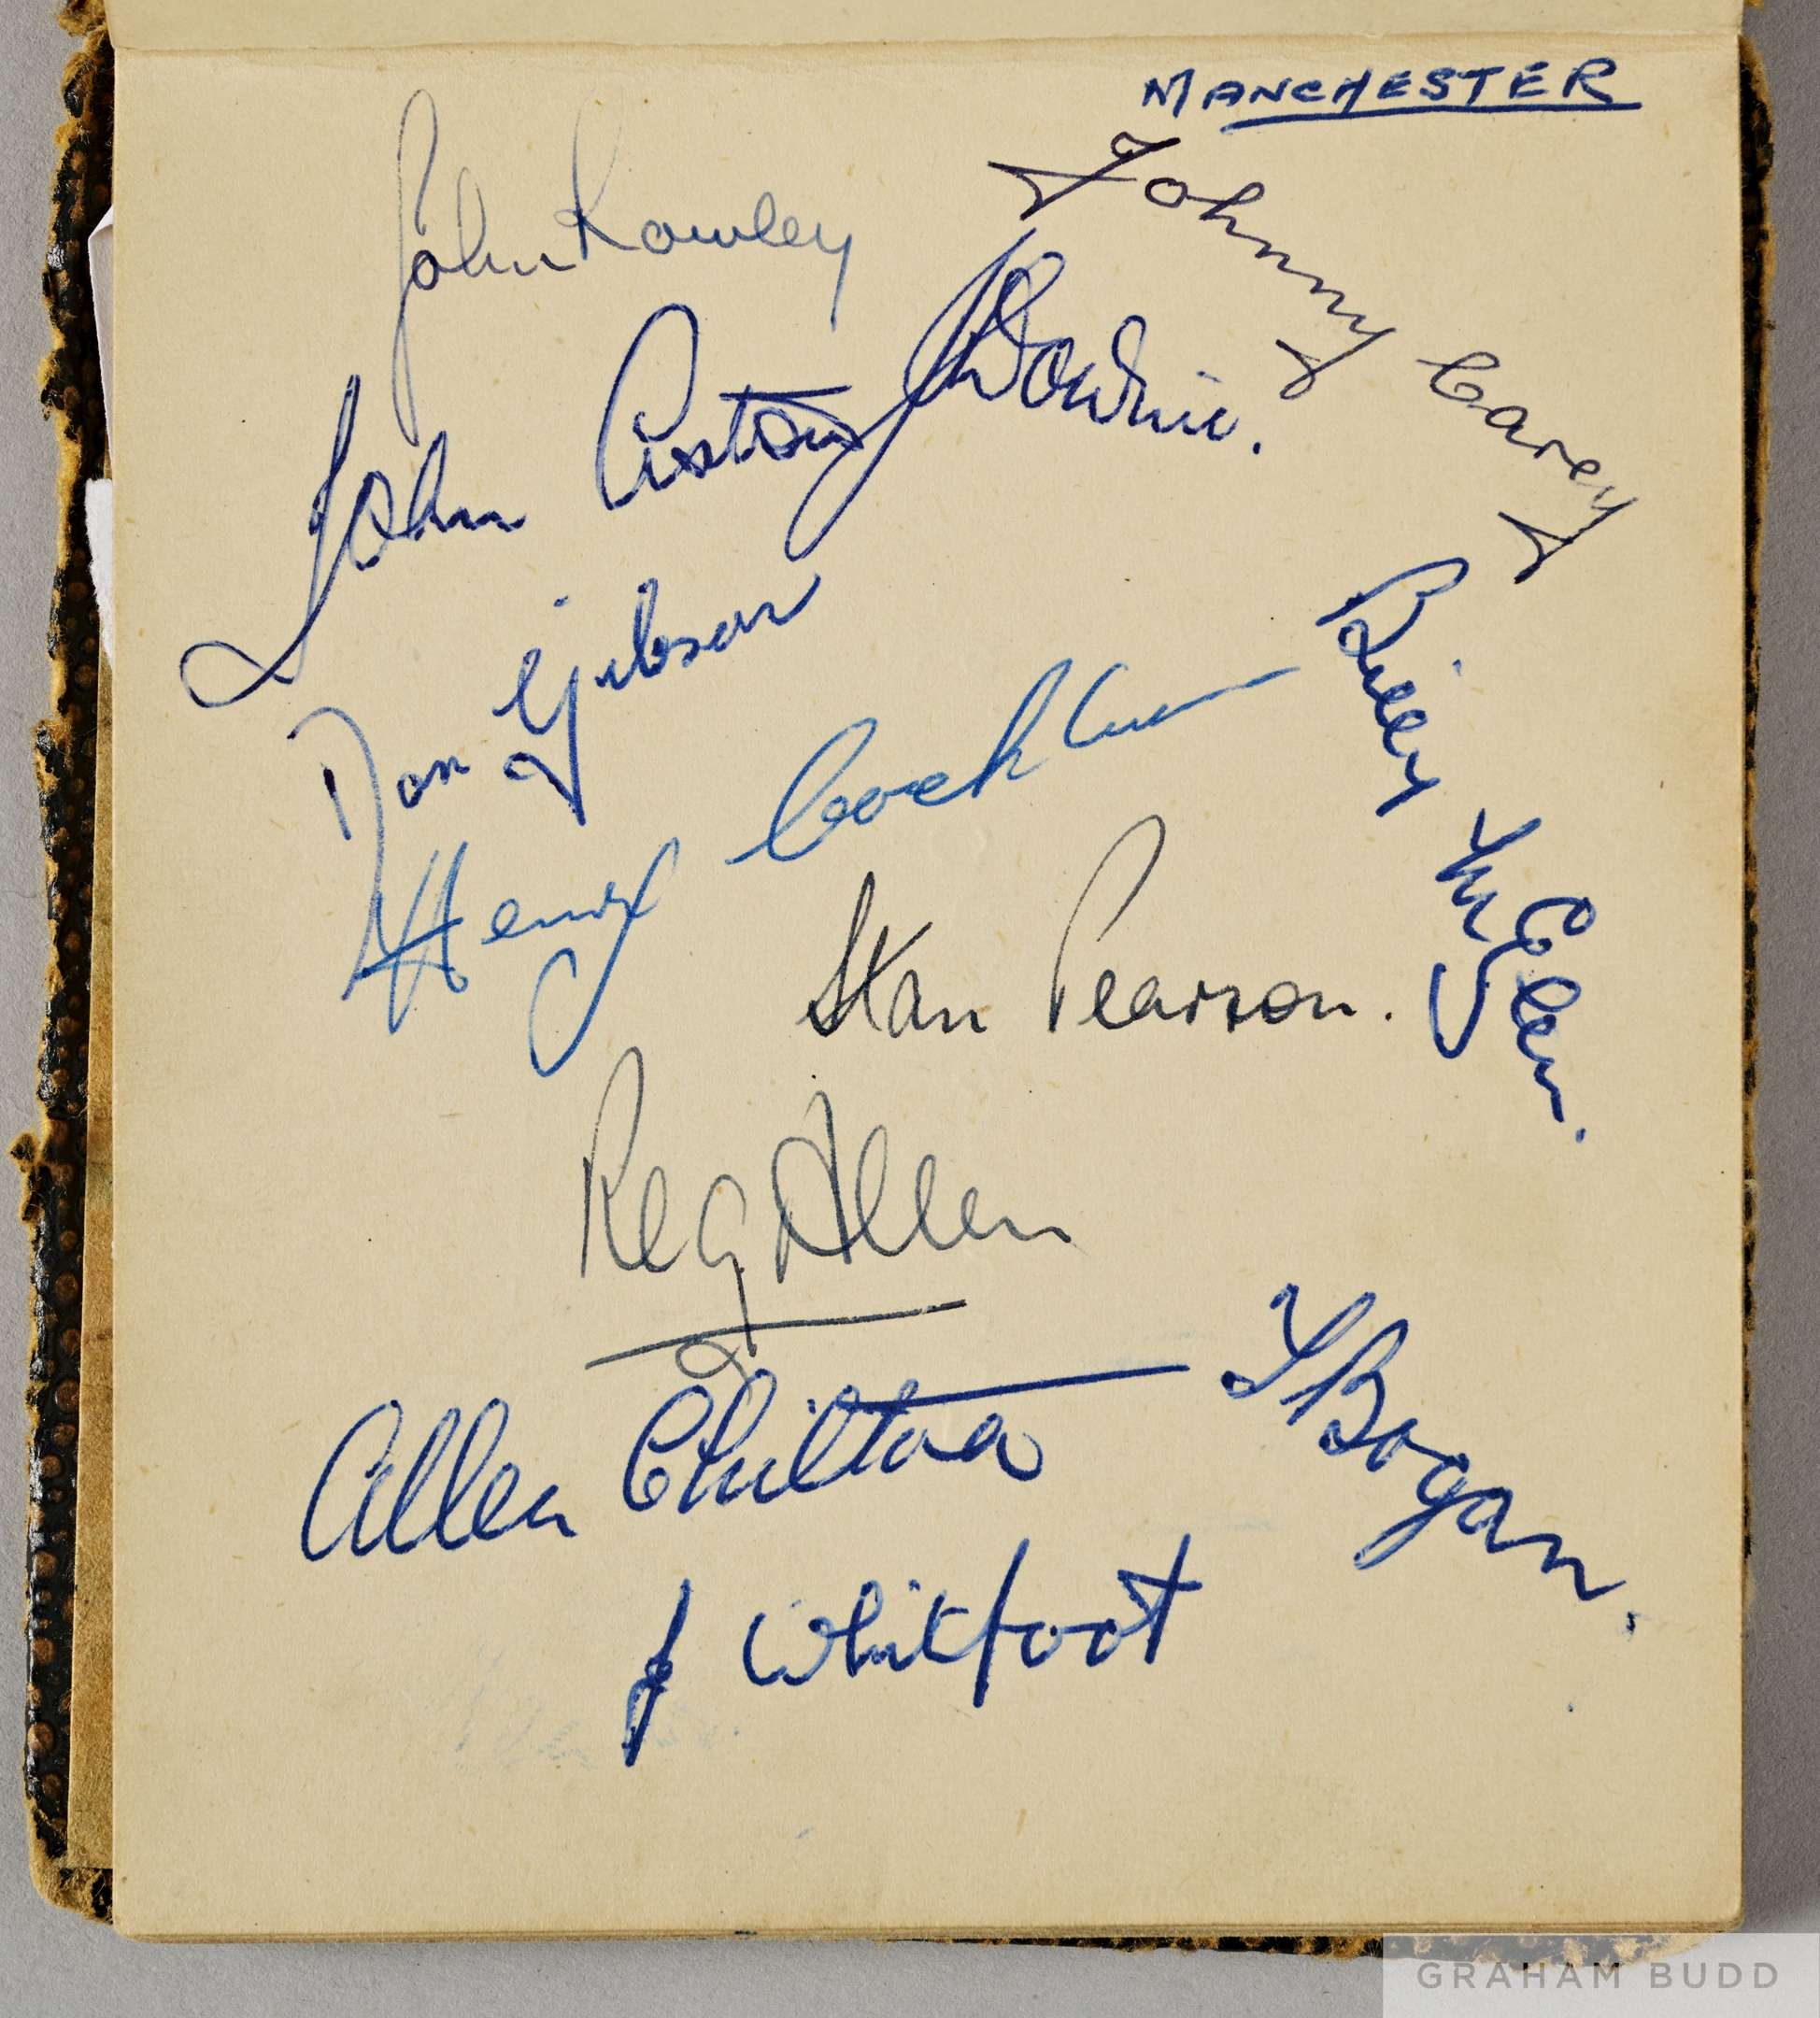 MANCHESTER
John Rowley
Johnny Carey
John Aston
J Downie.
Don Gibson
Billy McGlen.
Henry Cockburn
Stan Pearson.
Reg Allen
Allen Chilton
T Bogan.
J Whitefoot
GRAHAM BUDD